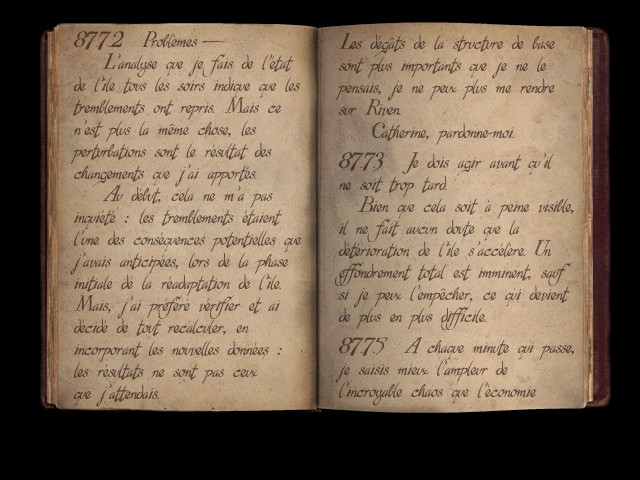 87.72 Problèmes —
L'analyse que je fais de l'état
de l'île tous les soirs indique que les
tremblements ont repris. Mais ce
n'est plus la même chose, les
perturbations sont le résultat des
changements que j'ai apportés.
Au début, cela ne m'a pas
inquiété : les tremblements étaient
l'une des conséquences potentielles que
j'avais anticipées, lors de la phase
initiale de la réadaptation de l'île.
Mais, j'ai préféré vérifier et ai
décidé de tout recalculer, en
incorporant les nouvelles données :
les résultats ne sont pas ceux
que j'attendais.
Les dégâts de la structure de base
sont plus importants que je ne le
pensais, je ne peux plus me rendre
sur Riven.
Catherine, pardonne-moi.
87.73 Je dois agir avant qu'il
ne soit trop tard.
Bien que cela soit à peine visible,
il ne fait aucun doute que la
détérioration de l'île s'accélère. Un
effondrement total est imminent, sauf
si je peux l'empêcher, ce qui devient
de plus en plus difficile.
87.75 A chaque minute qui passe,
je saisis mieux l'ampleur de
l'incroyable chaos que l'économie